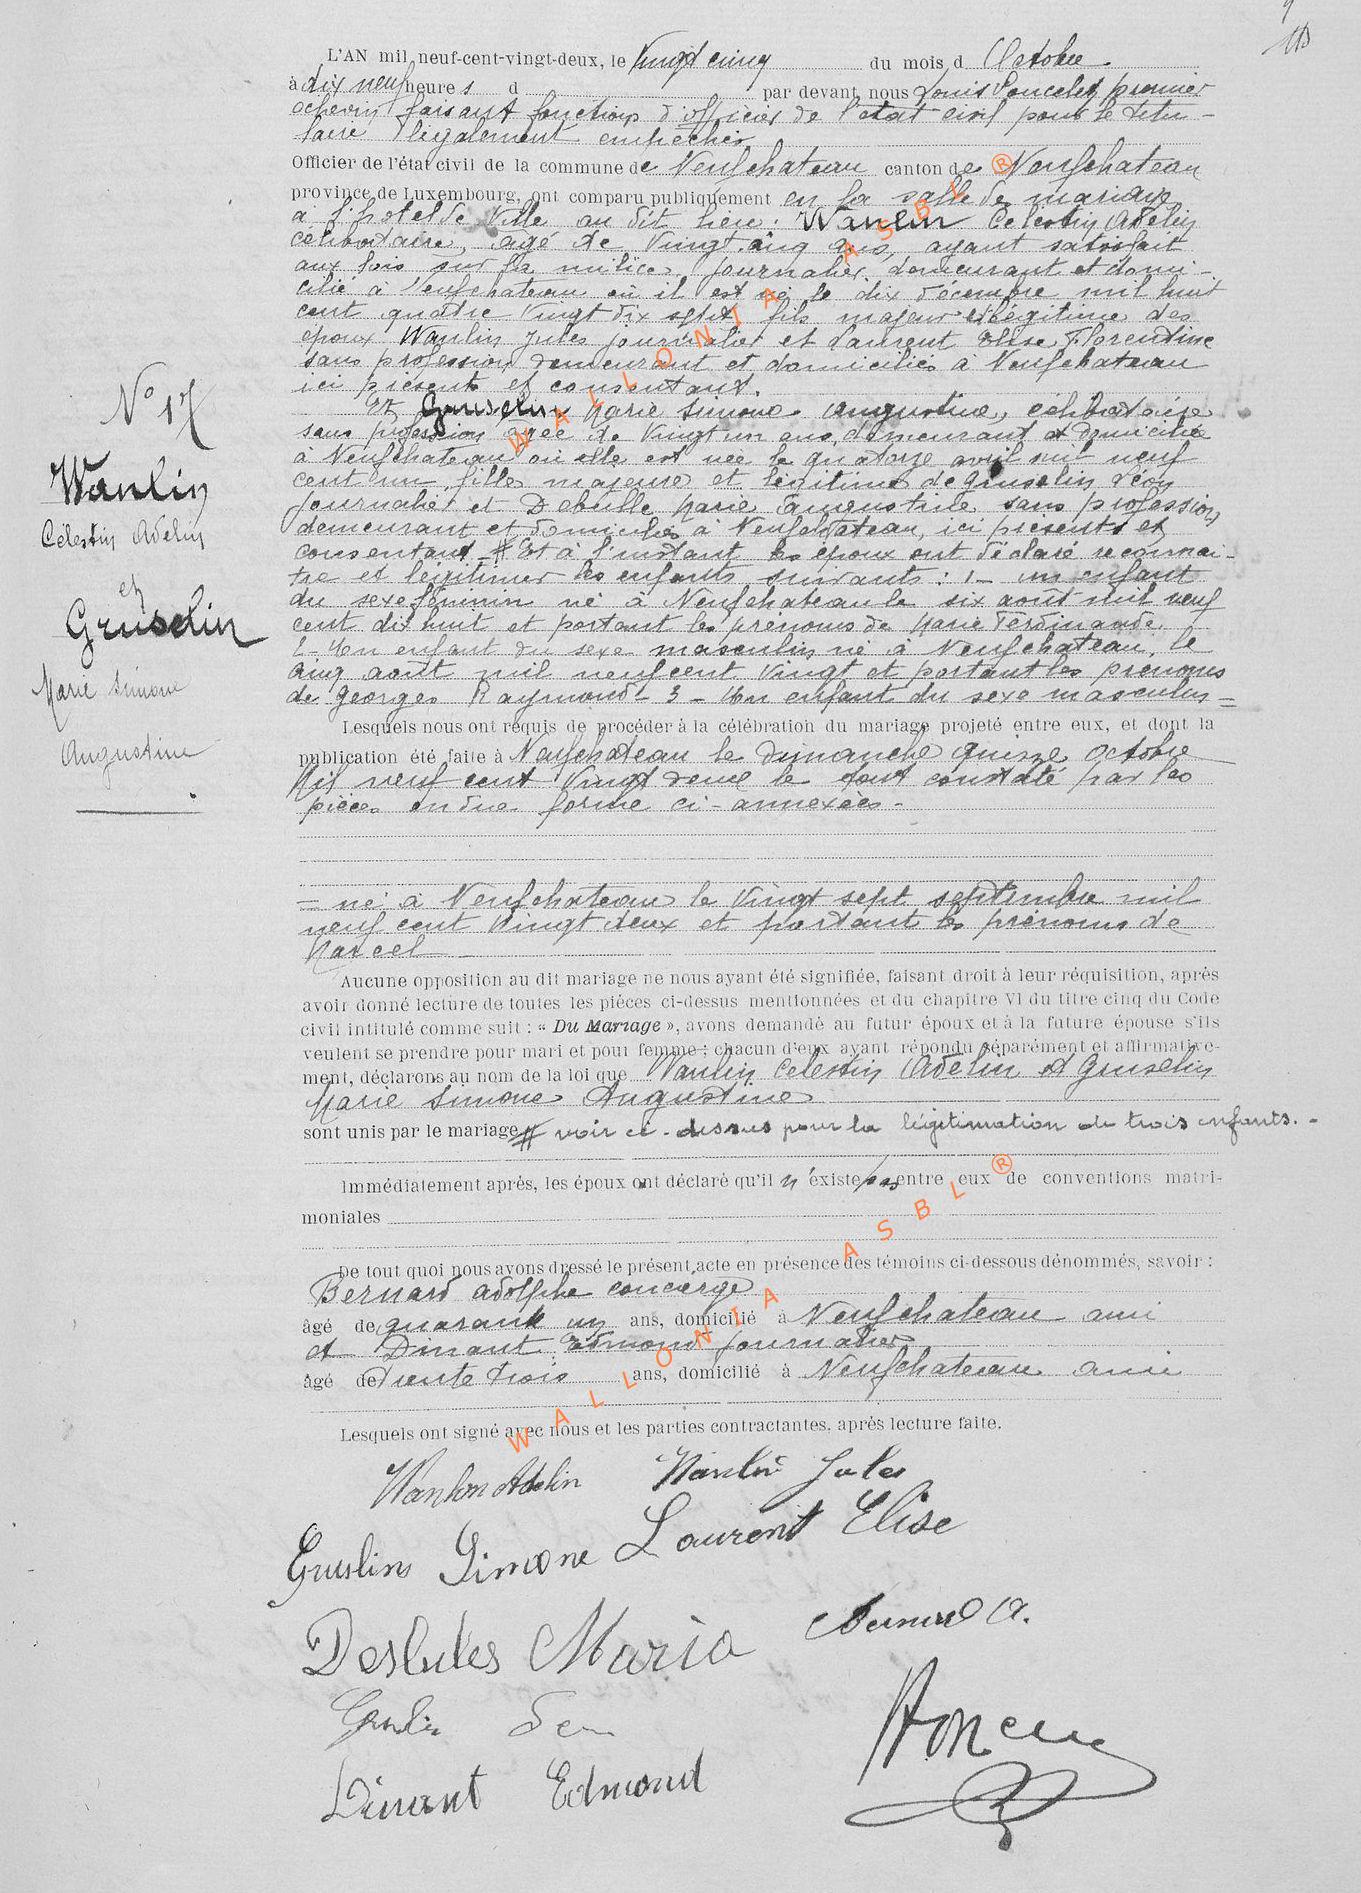 L'AN mil neuf-cent-vingt-deux, le Vingt cinq du mois d Octobre
à dix neuf heures d par devant nous Louis Poncelet premier
échevin faisant fonctions d'officier de l'état civil pour le titu-
laire légalement empêché
Officier de l'état civil de la commune de Neufchateau canton de Neufchateau
province de Luxembourg, ont comparu publiquement en la salle de mariage
à l'hotel de Ville au dit lieu : Wanlin Célestin Adelin
célibataire, agé de Vingt cinq ans, ayant satisfait
aux lois sur la milice, journalier, demeurant et domi-
cilié à Neufchateau où il est né le dix décembre mil huit
cent quatre Vingt dix sept fils majeur et légitime des
époux Wanlin Jules journalier et Laurent Elise Florentine
sans profession demeurant et domiciliés à Neufchateau
ici présents et consentant.
Et Gruselin Marie Simone Augustine, célibataire
sans profession agée de Vingt un ans, demeurant et domiciliée
à Neufchateau où elle est née le quatorze avril mil neuf
cent un, fille majeure et légitime de Gruselin Léon
journalier et Marie sans profession
demeurant et domiciliés à Neufchateau, ici présents et
consentant # Et à l'instant les époux ont déclaré reconnai-
tre et légitimer les enfants suivants : 1- un enfant
du sexe féminin né à Neufchateau le six août mil neuf
cent dix huit et portant les prénoms de Marie Ferdinande.
2- Un enfant du sexe masculin né à Neufchateau, le
cinq août mil neuf cent Vingt et portant les prénoms
de Georges Raymond - 3 - Un enfant du sexe masculin =
N° 17
Wanlin
Célestin Adelin
et
Gruselin
Marie Simone
Augustine
Lesquels nous ont requis de procéder à la célébration du mariage projeté entre eux, et dont la
publication été faite à Neufchateau le dimanche quinze octobre
Mil neuf cent Vingt deux le tout constaté par les
pièces en due forme ci-annexées -
= né à Neufchateau le Vingt sept septembre mil
neuf cent Vingt deux et portant les prénoms de
Marcel
Aucune opposition au dit mariage ne nous ayant été signifiée, faisant droit à leur réquisition, après
avoir donné lecture de toutes les pièces ci-dessus mentionnées et du chapitre VI du titre cinq du Code
civil intitulé comme suit : « Du Mariage », avons demandé au futur époux et à la future épouse s'ils
veulent se prendre pour mari et pour femme ; chacun d'eux ayant répondu séparément et affirmative-
ment, déclarons au nom de la loi que Wanlin Celestin Adelin et Gruselin
Marie Simone Augustine
sont unis par le mariage # voir ci-dessus pour la légitimation de trois enfants. -
Immédiatement après, les époux ont déclaré qu'il n'existe pas entre eux de conventions matri-
moniales
De tout quoi nous avons dressé le présent acte en présence des témoins ci-dessous dénommés, savoir :
Bernard Adolphe concierge
âgé de quarante un ans, domicilié à Neufchateau ami
et Dinant Edmond journalier
âgé de trente trois ans, domicilié à Neufchateau ami
Lesquels ont signé avec nous et les parties contractantes, après lecture faite.
Wanlin Adelin Wanlin Jules
Gruslin Simone Laurent Elise
Maria Bernard A.
Dinant Edmond
WALLONIA ASBL ®
WALLONIA ASBL ®